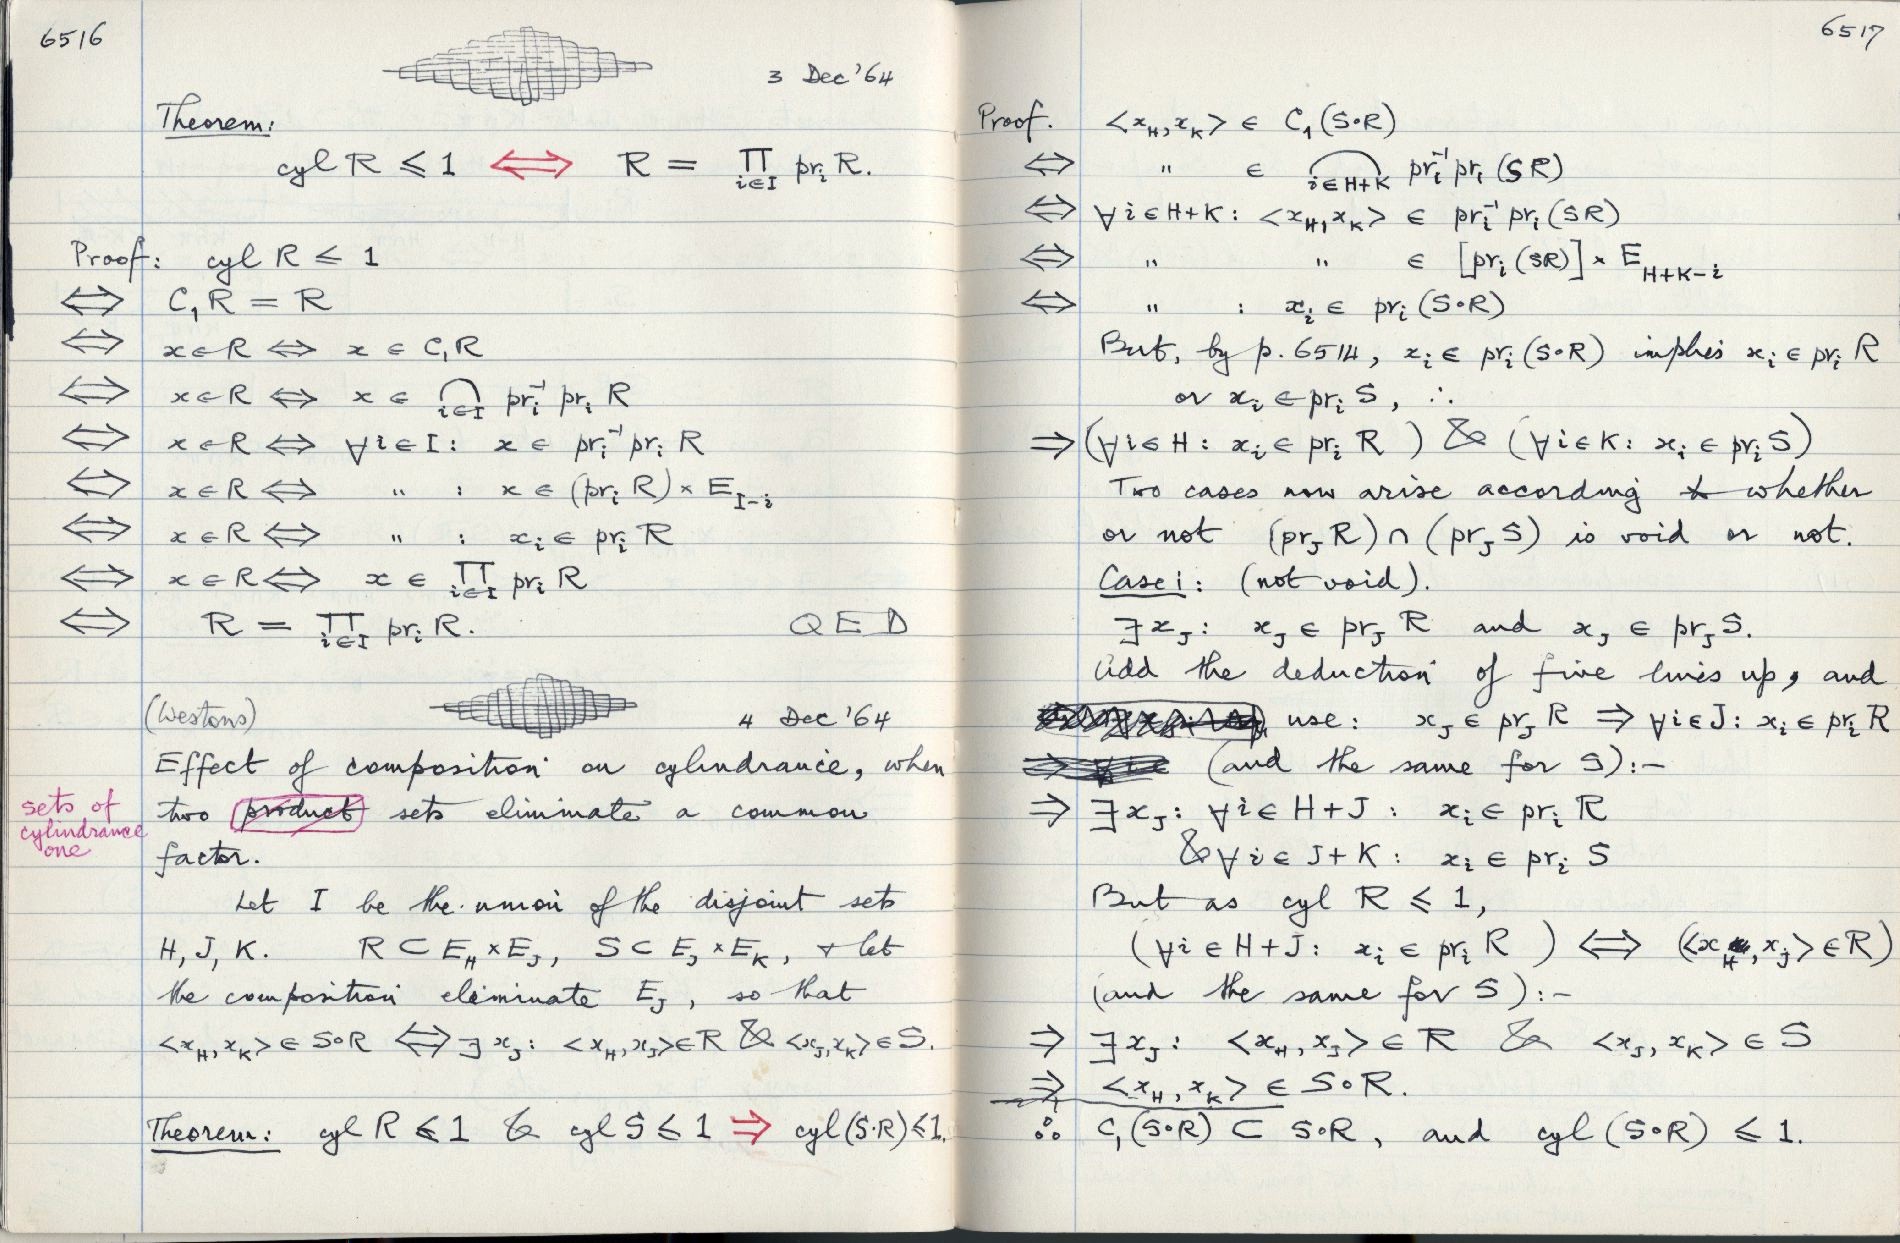 6516
3 Dec '64
Theorem:
cyl R ⩽ 1 ⟺ R = ∏_{i∈I} pr_i R.
Proof: cyl R ⩽ 1
⟺ C₁R = R
⟺ x∈R ⟺ x ∈ C₁R
⟺ x∈R ⟺ x ∈ ⋂_{i∈I} pr_i⁻¹ pr_i R
⟺ x∈R ⟺ ∀i∈I: x ∈ pr_i⁻¹ pr_i R
⟺ x∈R ⟺ " : x ∈ (pr_i R) × E_{I-i}
⟺ x∈R ⟺ " : x_i ∈ pr_i R
⟺ x∈R ⟺ x ∈ ∏_{i∈I} pr_i R
⟺ R = ∏_{i∈I} pr_i R. QED
(Westons) 4 Dec '64
Effect of composition on cylindrance, when
two product sets eliminate a common
sets of
cylindrance
one
factor.
Let I be the union of the disjoint sets
H, J, K. R ⊂ E_H × E_J, S ⊂ E_J × E_K, & let
the composition eliminate E_J, so that
<x_H, x_K> ∈ S∘R ⟺ ∃x_J: <x_H, x_J> ∈ R & <x_J, x_K> ∈ S.
Theorem: cyl R ⩽ 1 & cyl S ⩽ 1 ⇒ cyl(S∘R) ⩽ 1.
6517
Proof. <x_H, x_K> ∈ C₁(S∘R)
⟺ " ∈ ⋂_{i∈H+K} pr_i⁻¹ pr_i (SR)
⟺ ∀i∈H+K: <x_H, x_K> ∈ pr_i⁻¹ pr_i (SR)
⟺ " " ∈ [pr_i (SR)] × E_{H+K-i}
⟺ " : x_i ∈ pr_i (S∘R)
But, by p. 6514, x_i ∈ pr_i (S∘R) implies x_i ∈ pr_i R
or x_i ∈ pr_i S, ∴
⇒ (∀i∈H: x_i ∈ pr_i R) & (∀i∈K: x_i ∈ pr_i S)
Two cases now arise according to whether
or not (pr_J R) ∩ (pr_J S) is void or not.
Case i: (not void).
∃x_J: x_J ∈ pr_J R and x_J ∈ pr_J S.
Add the deduction of five lines up, and
use: x_J ∈ pr_J R ⇒ ∀i∈J: x_i ∈ pr_i R
(and the same for S):-
⇒ ∃x_J: ∀i∈H+J: x_i ∈ pr_i R
& ∀i∈J+K: x_i ∈ pr_i S
But as cyl R ⩽ 1,
(∀i∈H+J: x_i ∈ pr_i R) ⟺ (<x_H, x_J> ∈ R)
(and the same for S):-
⇒ ∃x_J: <x_H, x_J> ∈ R & <x_J, x_K> ∈ S
⇒ <x_H, x_K> ∈ S∘R.
∴ C₁(S∘R) ⊂ S∘R, and cyl (S∘R) ⩽ 1.